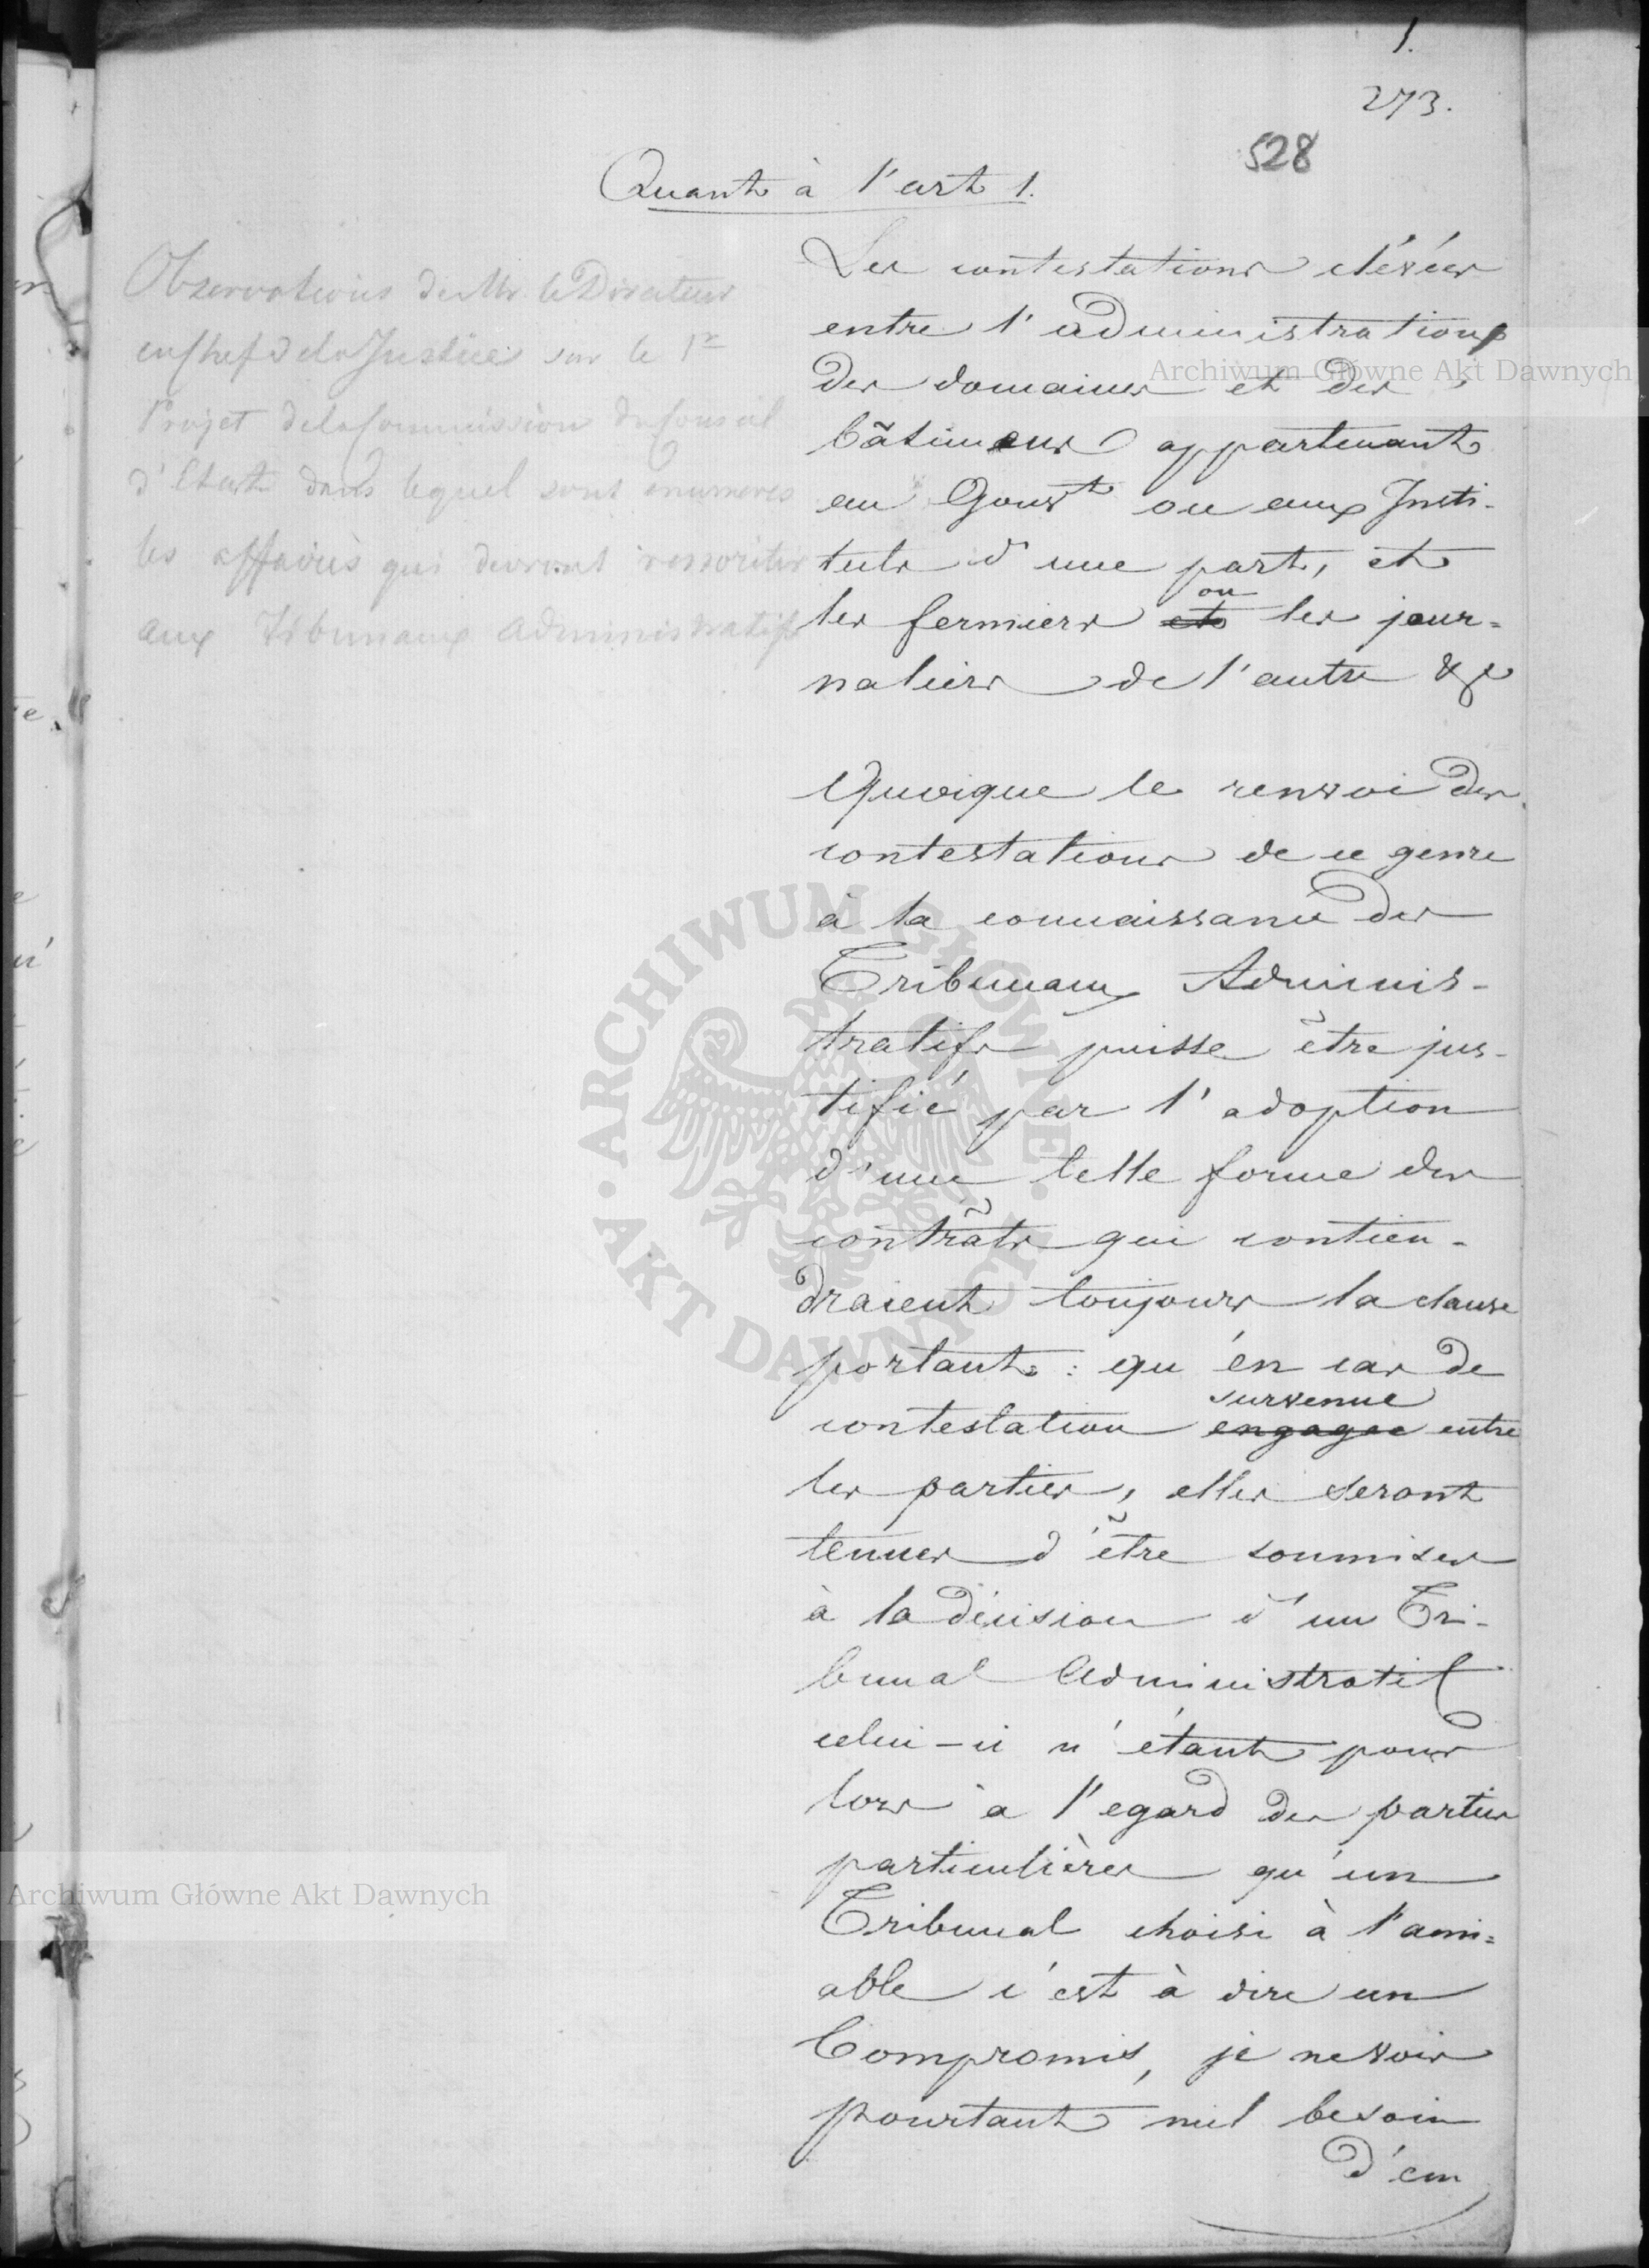 1.
273.
528
Quant à l'art 1.
Observations de Mr. le Directeur
en chef de la Justice sur le 1r
Projet de la Commission du Conseil
d'Etat dans lequel sont enumeres
les affaires qui devront ressortir
aux Tribunaux administratifs
Les contestations élévées
entre l'administration
des domaines et des
bâtimens appartenant
au Gouvt ou aux Insti-
tuts d'une part, et
les fermiers et ou les jour=
naliers de l'autre &c
Quoique le renvoi des
contestations de ce genre
à la connaissance des
Tribunaux Adminis-
tratifs puisse être jus-
tifié par l'adoption
d'une telle forme des
contrâts qui contien-
draient toujours la clause
portant: qu'én cas de
contestation engagee survenue entre
les parties, elles seront
tenues d'être soumises
à la décision d'un Tri-
bunal Administratif
celui-ci n'étant pour
lors à l'egard des parties
particulières qu'un
Tribunal choisi à l'ami=
able c'est à dire un
Compromis, je ne vois
pourtant nul besoin
d'em
Archiwum Główne Akt Dawnych
ARCHIWUM GŁÓWNE AKT DAWNYCH
Archiwum Główne Akt Dawnych